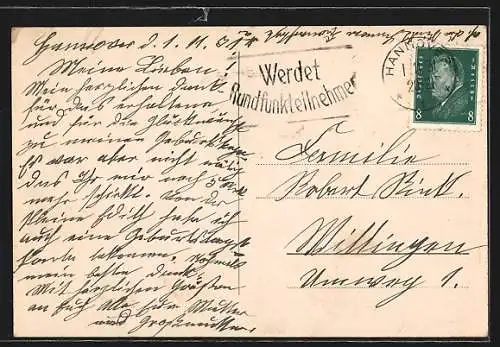 Hannover d. 1. 11. 31.
Meine Lieben!
Mein herzlichen Dank
für das erhaltene
und für die Glückwünsche
zu meinen Geburtstage.
Es war aber nicht nötig
das Ihr mir noch
mehr schickt. Von der
kleine Edith habe ich
auch eine Geburtstags
karte bekommen, nochmals
mein besten Dank.
Mit herzlichen Grüßen
an Euch Alle Eure Mutter
und Großmutter.
Werdet
Rundfunkteilnehmer
HANNOVER
DEUTSCHES REICH
8 8
Familie
Robert Rink.
Wittingen
Umweg 1.